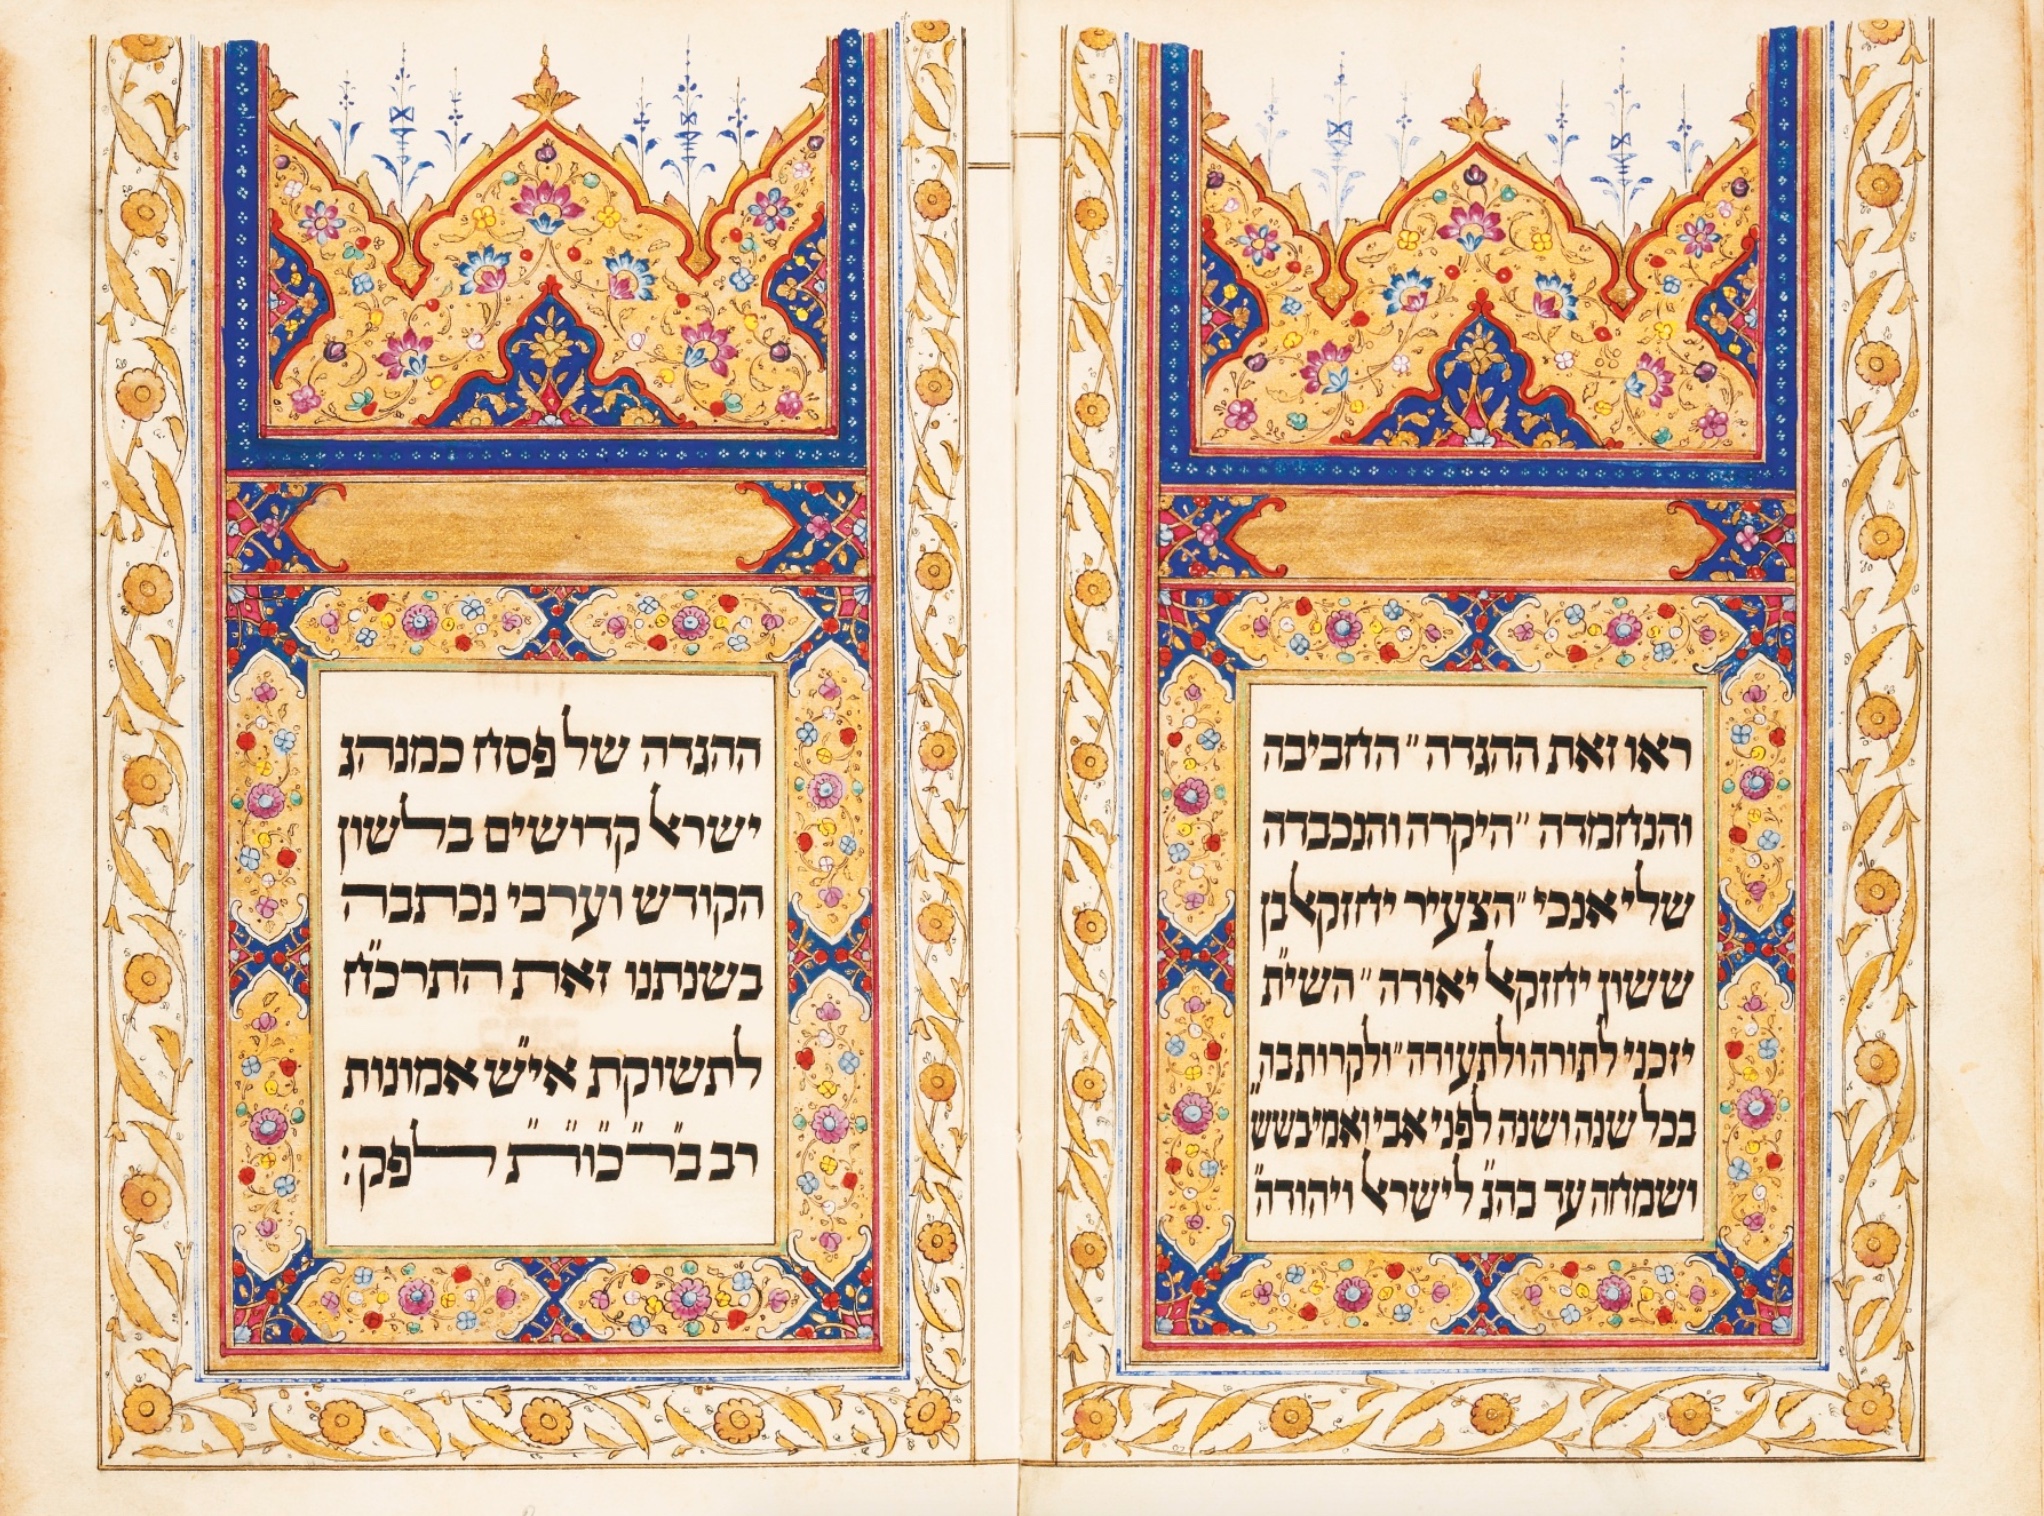 ראו זאת ההגדה ״ החביבה
והנחמדה ״ היקרה והנכבדה
שלי אנכי ״ הצעיר יחזקאל בן
ששון יחזקאל יאודה ״ השי״ת
יזכני לתורה ולתעודה ״ ולקרות בה,
בכל שנה ושנה לפני אבי ואמי בשש
ושמחה עד בהג״ לישראל ויהודה״
ההגדה של פסח כמנהג
ישראל קדושים בלשון
הקודש וערבי נכתבה
בשנתנו זאת התרכ״ח
לתשוקת אי״ש אמונות
רב ב״ר״כ״ו״ת״ לפק :